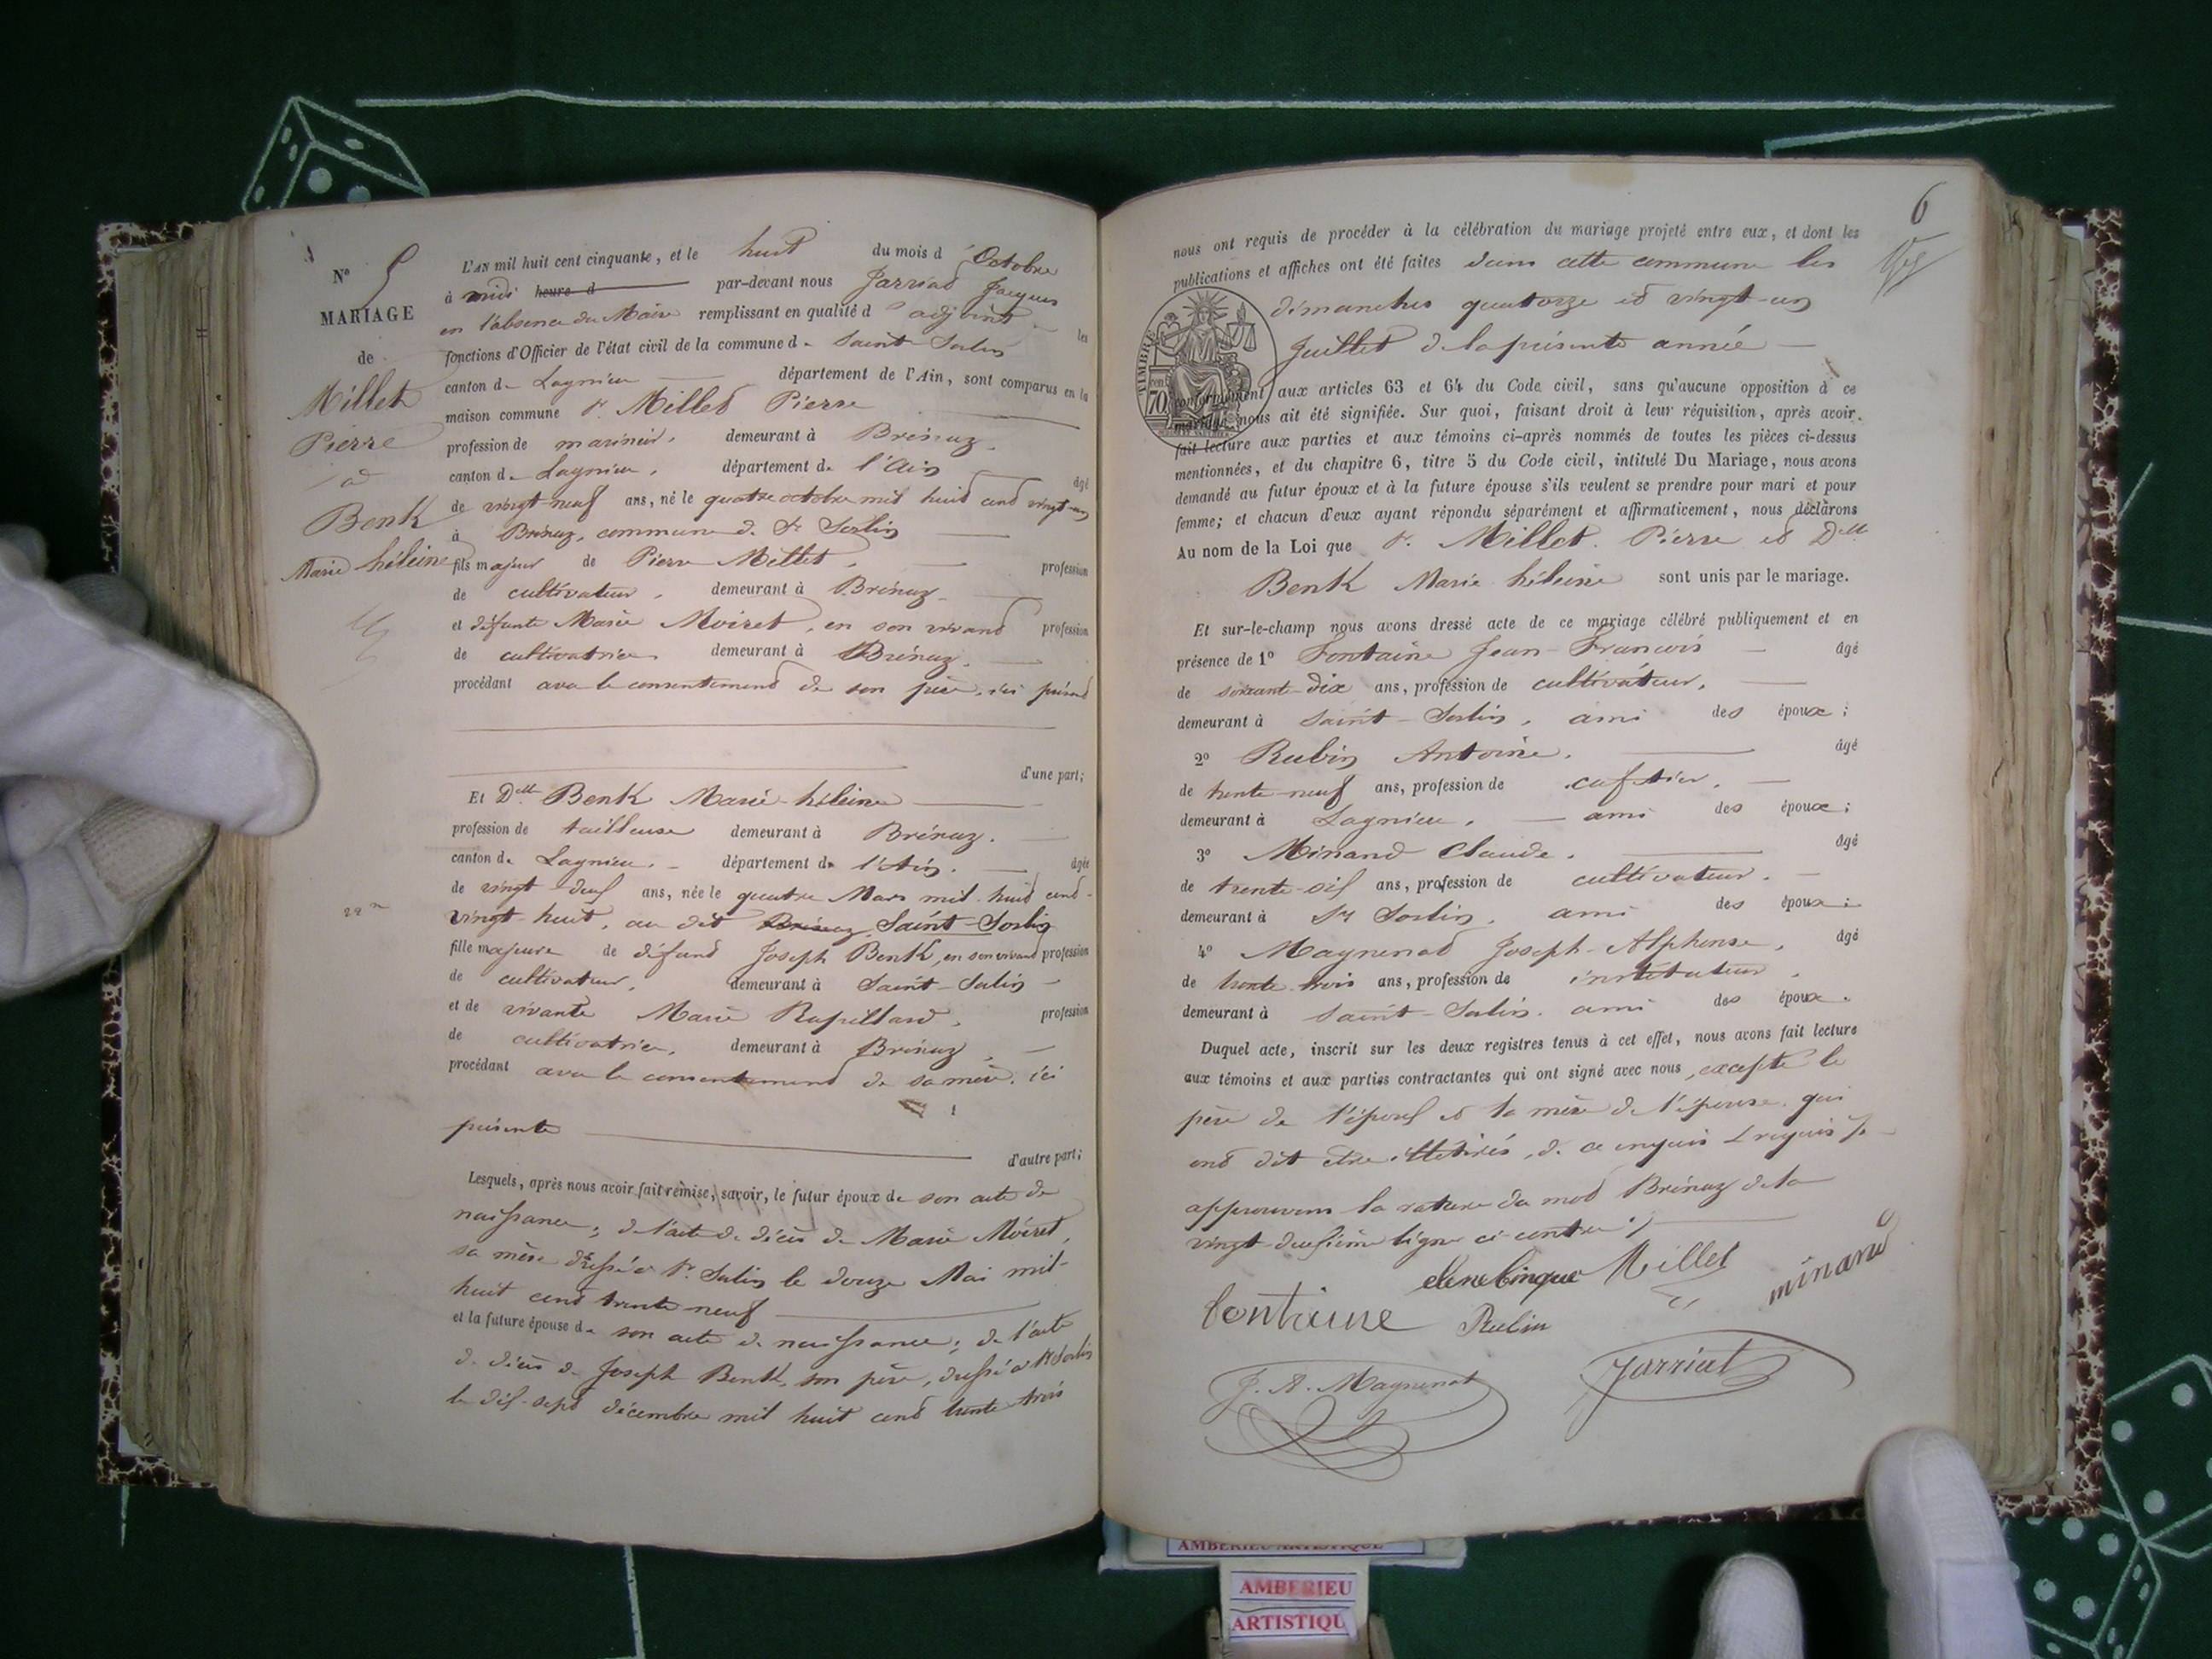 N° 5
MARIAGE
de
Millet
Pierre
et
Benk
Marie héleine
22 n
L'AN mil huit cent cinquante, et le huit du mois d'Octobre
à midi heure d par-devant nous Jarriat Jacques
en l'absence du Maire remplissant en qualité d'adjoint les
fonctions d'Officier de l'état civil de la commune de Saint-Sorlin
canton de Lagnieu département de l'Ain, sont comparus en la
maison commune Sr. Millet Pierre
profession de marinier, demeurant à Brénaz.
canton de Lagnieu, département de l'Ain âgé
de vingt-neuf ans, né le quatre octobre mil huit cent vingt-un
à Brénaz, commune de St Sorlin
fils majeur de Pierre Millet, profession
de cultivateur, demeurant à Brénaz
et défunte Marie Moiret, en son vivant profession
de cultivatrice demeurant à Brénaz.
procédant avec le consentement de son père, ici présent
d'une part;
Et Delle Benk Marie-héleine
profession de tailleuse demeurant à Brénaz.
canton de Lagnieu. département de l'Ain. âgée
de vingt-deux ans, née le quatre Mars mil huit cent-
vingt-huit, au dit Brénaz Saint-Sorlin
fille majeure de défunt Joseph Benk, en son vivant profession
de cultivateur, demeurant à Saint-Sorlin
et de vivante Marie Rapillard, profession
de cultivatrice, demeurant à Brénaz,
procédant avec le consentement de sa mère, ici
présente
d'autre part;
Lesquels, après nous avoir fait remise, savoir, le futur époux de son acte de
naissance; de l'acte de décès de Marie Moiret,
sa mère dressé à St. Sorlin le douze Mai mil-
huit cent trente-neuf
et la future épouse de son acte de naissance; de l'acte
de décès de Joseph Benk, son père, dressé à St Sorlin
le dix-sept décembre mil huit cent trente trois
6
nous ont requis de procéder à la célébration du mariage projeté entre eux, et dont les
publications et affiches ont été faites dans cette commune les
dimanches quatorze et vingt-un
Juillet de la présente année
TIMBRE
70
conformément aux articles 63 et 64 du Code civil, sans qu'aucune opposition à ce
mariage nous ait été signifiée. Sur quoi, faisant droit à leur réquisition, après avoir
fait lecture aux parties et aux témoins ci-après nommés de toutes les pièces ci-dessus
mentionnées, et du chapitre 6, titre 5 du Code civil, intitulé Du Mariage, nous avons
demandé au futur époux et à la future épouse s'ils veulent se prendre pour mari et pour
femme; et chacun d'eux ayant répondu séparément et affirmativement, nous déclarons
Au nom de la Loi que Sr. Millet Pierre et Delle
Benk Marie héleine sont unis par le mariage.
Et sur-le-champ nous avons dressé acte de ce mariage célébré publiquement et en
présence de 1° Fontaine Jean-François âgé
de soixante-dix ans, profession de cultivateur,
demeurant à Saint-Sorlin, ami des époux;
2° Rubin Antoine. âgé
de trente-neuf ans, profession de caftier,
demeurant à Lagnieu, ami des époux;
3° Minand Claude. âgé
de trente-six ans, profession de cultivateur.
demeurant à St Sorlin. ami des époux;
4° Magnenat Joseph-Alphonse, âgé
de trente trois ans, profession de instituteur,
demeurant à Saint-Sorlin. ami des époux.
Duquel acte, inscrit sur les deux registres tenus à cet effet, nous avons fait lecture
aux témoins et aux parties contractantes qui ont signé avec nous, excepté le
père de l'époux et la mère de l'épouse qui
ont dit être illettrés, de ce enquis & requis
approuvons la rature du mot Brénaz de la
vingt-deuxième ligne ci-contre
Millet
minand
fontaine
Rubin
J. A. Magnenat
Jarriat
AMBERIEU ARTISTIQUE
AMBERIEU
ARTISTIQU